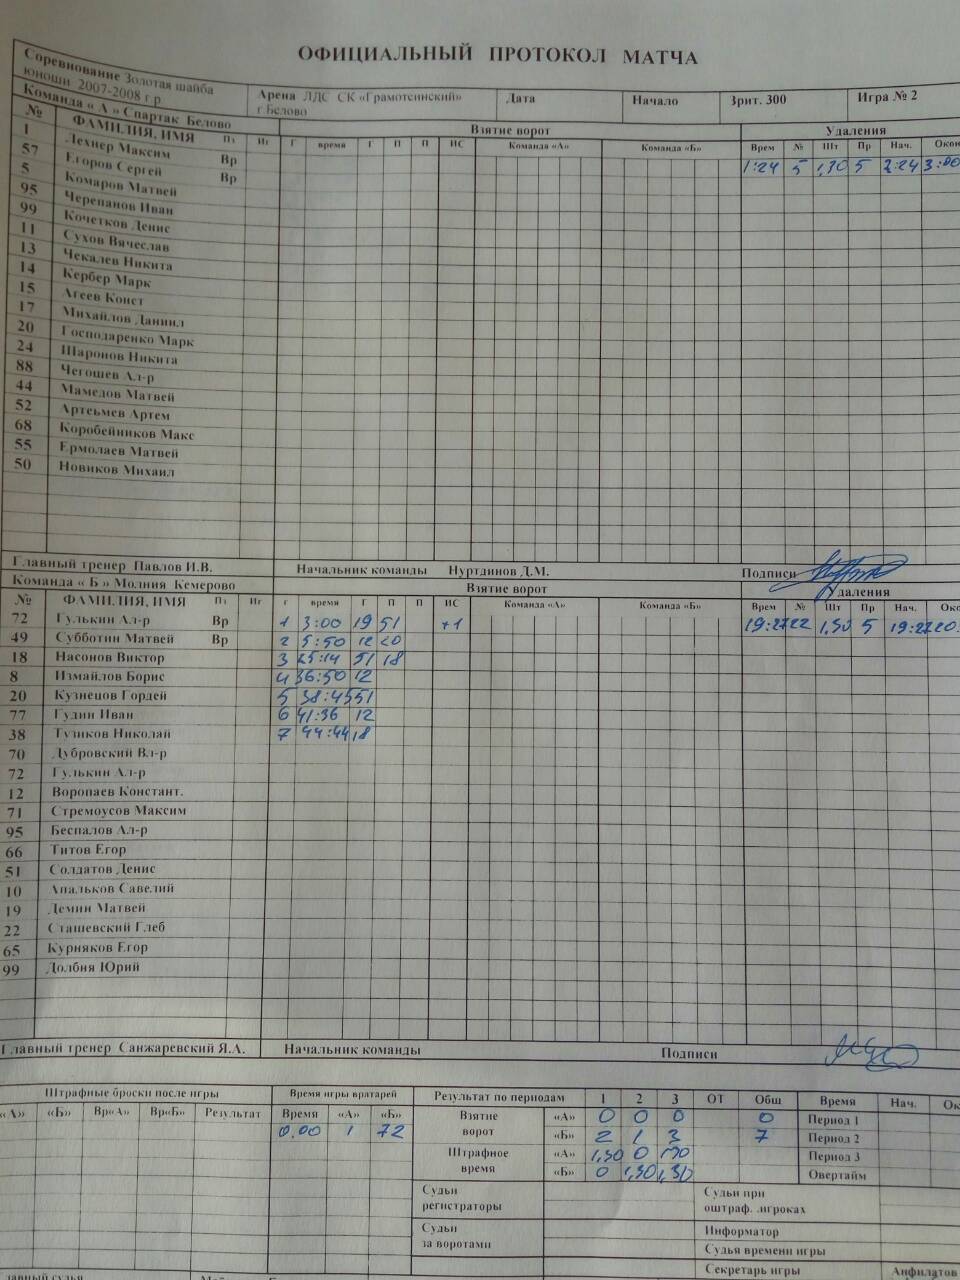 ОФИЦИАЛЬНЫЙ ПРОТОКОЛ МАТЧА
Соревнование Золотая шайба
юноши 2007-2008 г р
Арена ЛДС СК «Грамотеинский»
г.Белово
Дата
Начало
Зрит. 300
Игра № 2
Команда « А » Спартак Белово
Взятие ворот
Удаления
№ ФАМИЛИЯ, ИМЯ Пз Иг Г время Г П П ИС Команда «А» Команда «Б» Врем № Шт Пр Нач. Окон
1 Лехнер Максим Вр 1:24 5 1,30 5 2:24 3:00
57 Егоров Сергей Вр
5 Комаров Матвей
95 Черепанов Иван
99 Кочетков Денис
11 Сухов Вячеслав
13 Чекалев Никита
14 Кербер Марк
15 Агеев Конст
17 Михайлов Даниил
20 Господаренко Марк
24 Шаронов Никита
88 Чегошев Ал-р
44 Мамедов Матвей
52 Артеьмев Артем
68 Коробейников Макс
55 Ермолаев Матвей
50 Новиков Михаил
Главный тренер Павлов И.В. Начальник команды Нуртдинов Д.М. Подписи
Команда « Б » Молния Кемерово Взятие ворот Удаления
№ ФАМИЛИЯ, ИМЯ Пз Иг г время Г П П ИС Команда «А» Команда «Б» Врем № Шт Пр Нач. Око
72 Гулькин Ал-р Вр 1 3:00 19 51 +1 19:27 22 1,30 5 19:27 20:
49 Субботин Матвей Вр 2 5:50 12 20
18 Насонов Виктор 3 25:14 51 18
8 Измайлов Борис 4 36:50 12
20 Кузнецов Гордей 5 38:45 51
77 Гудин Иван 6 41:36 12
38 Тушков Николай 7 44:44 18
70 Дубровский Вл-р
72 Гулькин Ал-р
12 Воропаев Констант.
71 Стремоусов Максим
95 Беспалов Ал-р
66 Титов Егор
51 Солдатов Денис
10 Апальков Савелий
19 Демин Матвей
22 Сташевский Глеб
65 Курняков Егор
99 Долбня Юрий
Главный тренер Санжаревский Я.А. Начальник команды Подписи
Штрафные броски после игры Время игры вратарей Результат по периодам 1 2 3 ОТ Общ Время Нач. Ок
«А» «Б» Вр«А» Вр«Б» Результат Время «А» «Б» Взятие ворот «А» 0 0 0 0 Период 1
0,00 1 72 «Б» 2 1 3 7 Период 2
Штрафное время «А» 1,30 0 Период 3
«Б» 0 1,30 1,30 Овертайм
Судьи регистраторы
Судьи при оштраф. игроках
Судьи за воротами
Информатор
Судья времени игры
Секретарь игры Анфилатов